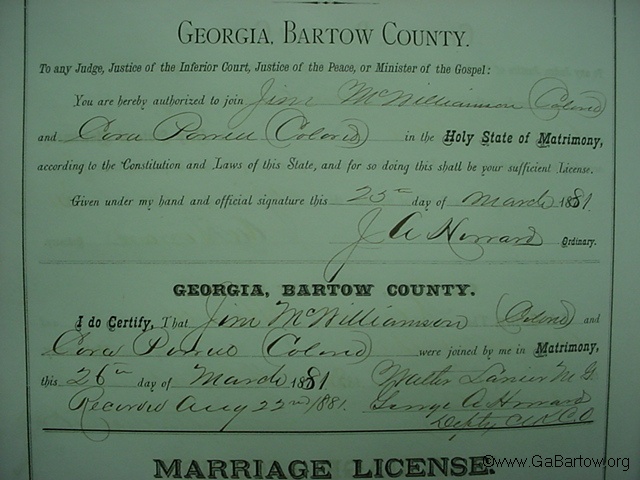 GEORGIA, BARTOW COUNTY.
To any Judge, Justice of the Inferior Court, Justice of the Peace, or Minister of the Gospel:
You are hereby authorized to join Jim McWilliamson (Colored)
and Cora (Colored) in the Holy State of Matrimony,
according to the Constitution and Laws of this State, and for so doing this shall be your sufficient License.
Given under my hand and official signature this 25th day of March 1881.
J A Howard Ordinary.
GEORGIA, BARTOW COUNTY.
I do Certify, That Jim McWilliamson (Colored) and
Cora (Colored) were joined by me in Matrimony,
this 26th day of March 1881 Lanier M. G.
Recorded Aug 22nd 1881. George A Howard
Depty C.C.O
MARRIAGE LICENSE.
©www.GaBartow.org